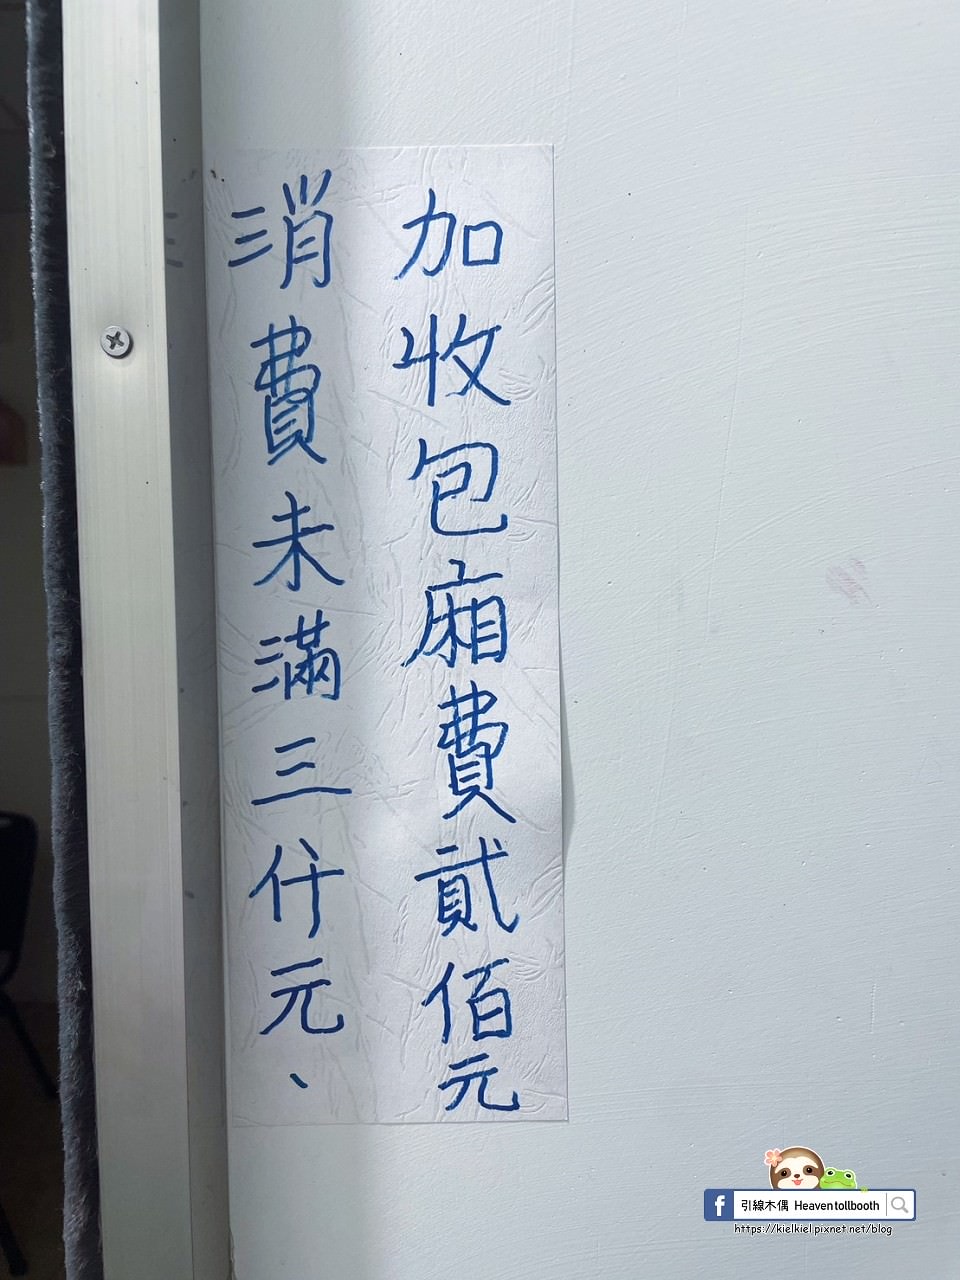 消費未滿三仟元、
加收包廂費貳佰元
引線木偶 Heaventollbooth
https://kielkiel.pixnet.net/blog